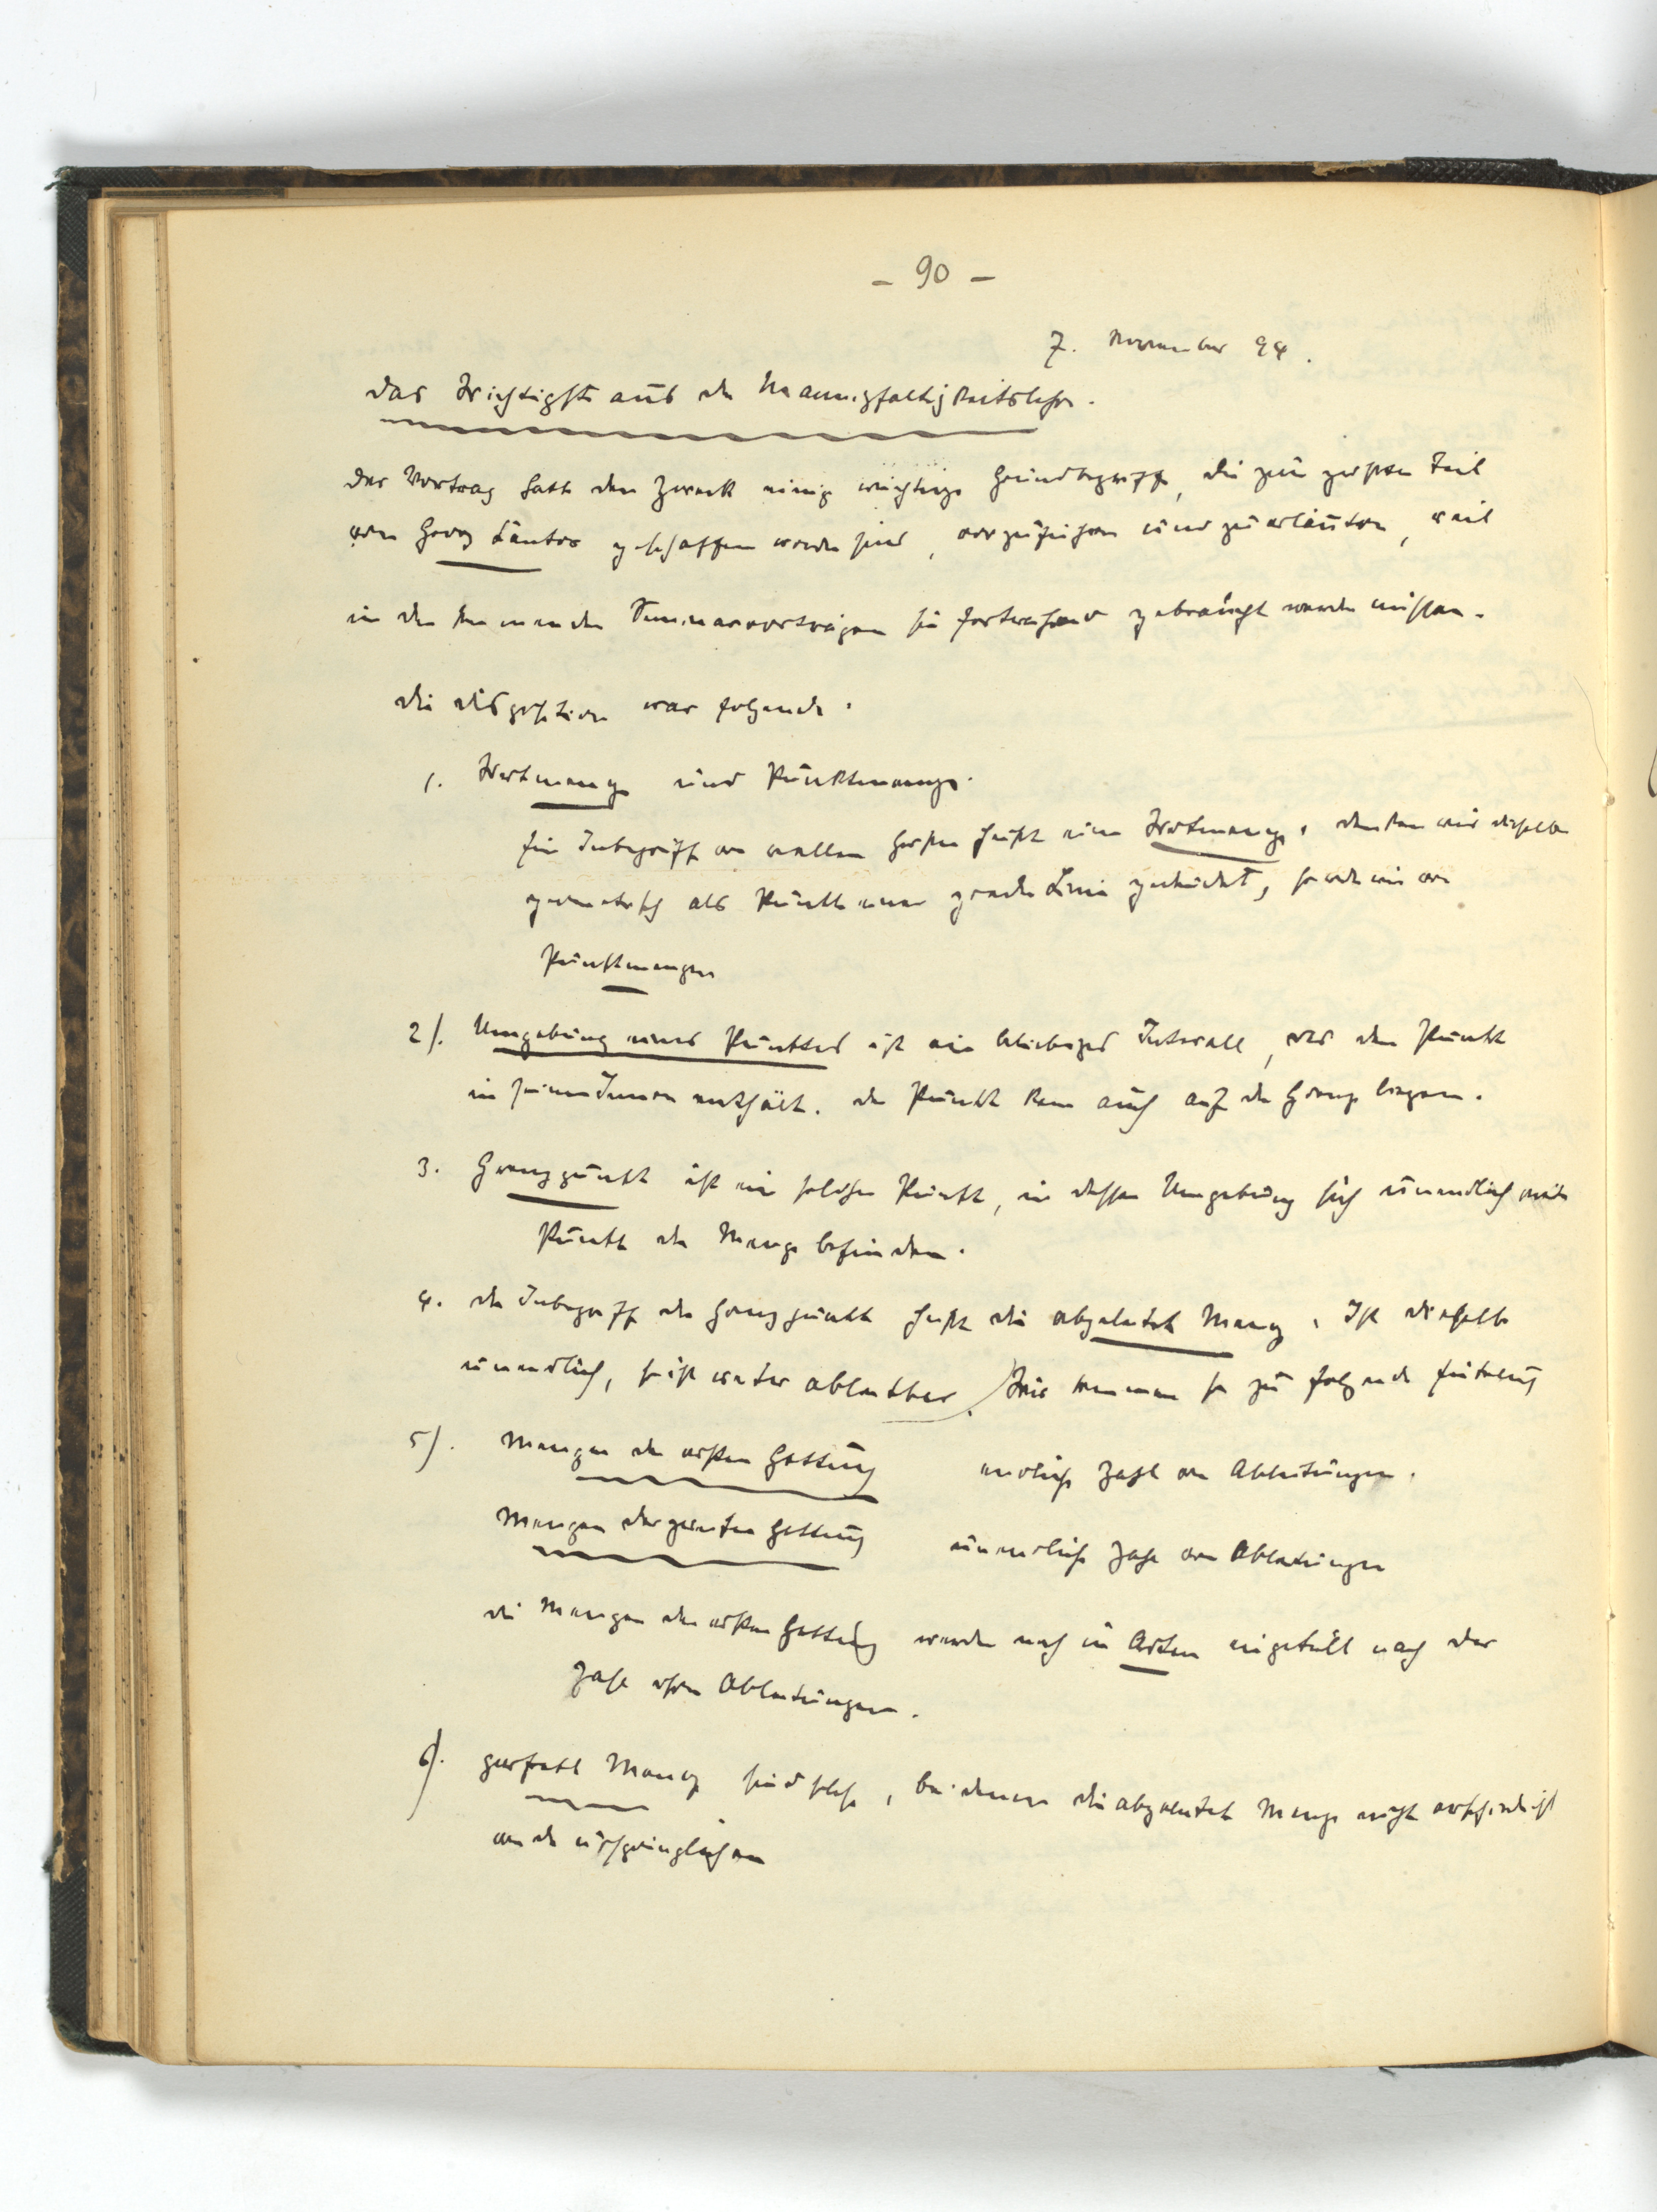 – 90 –
7. November 94.
Das Wichtigste aus der Mannigfaltigkeitslehre.
Der Vortrag hatte den Zweck einige wichtige Grundbegriffe, die zum größten Teil
von Georg Cantor geschaffen worden sind, vorzuführen und zu erläutern, weil
in den kommenden Seminarvorträgen sie fortwährend gebraucht werden müssen.
Die Disposition war folgende.
1. Wertmenge und Punktmenge.
Ein Inbegriff von reellen Größen heißt eine Wertmenge. Denken wir dieselben
geometrisch als Punkte einer geraden Linie gedeutet, so reden wir von
Punktmengen
2). Umgebung eines Punktes ist ein beliebiges Intervall, das den Punkt
in seinem Innern enthält. Der Punkt kann auch auf der Grenze liegen.
3. Grenzpunkt ist ein solcher Punkt, in dessen Umgebung sich unendlich viele
Punkte der Menge befinden.
4. Der Inbegriff der Grenzpunkte heißt die abgeleitete Menge. Ist dieselbe
unendlich, so ist weiter ableitbar. Wir kommen so zu folgender Einteilung
5). Mengen der ersten Gattung endliche Zahl von Ableitungen.
Mengen der zweiten Gattung unendliche Zahl von Ableitungen
Die Mengen der ersten Gattung werden noch in Arten eingeteilt nach der
Zahl ihrer Ableitungen.
6). perfekte Menge sind solche, bei denen die abgeleitete Menge nicht verschieden ist
von der ursprünglichen